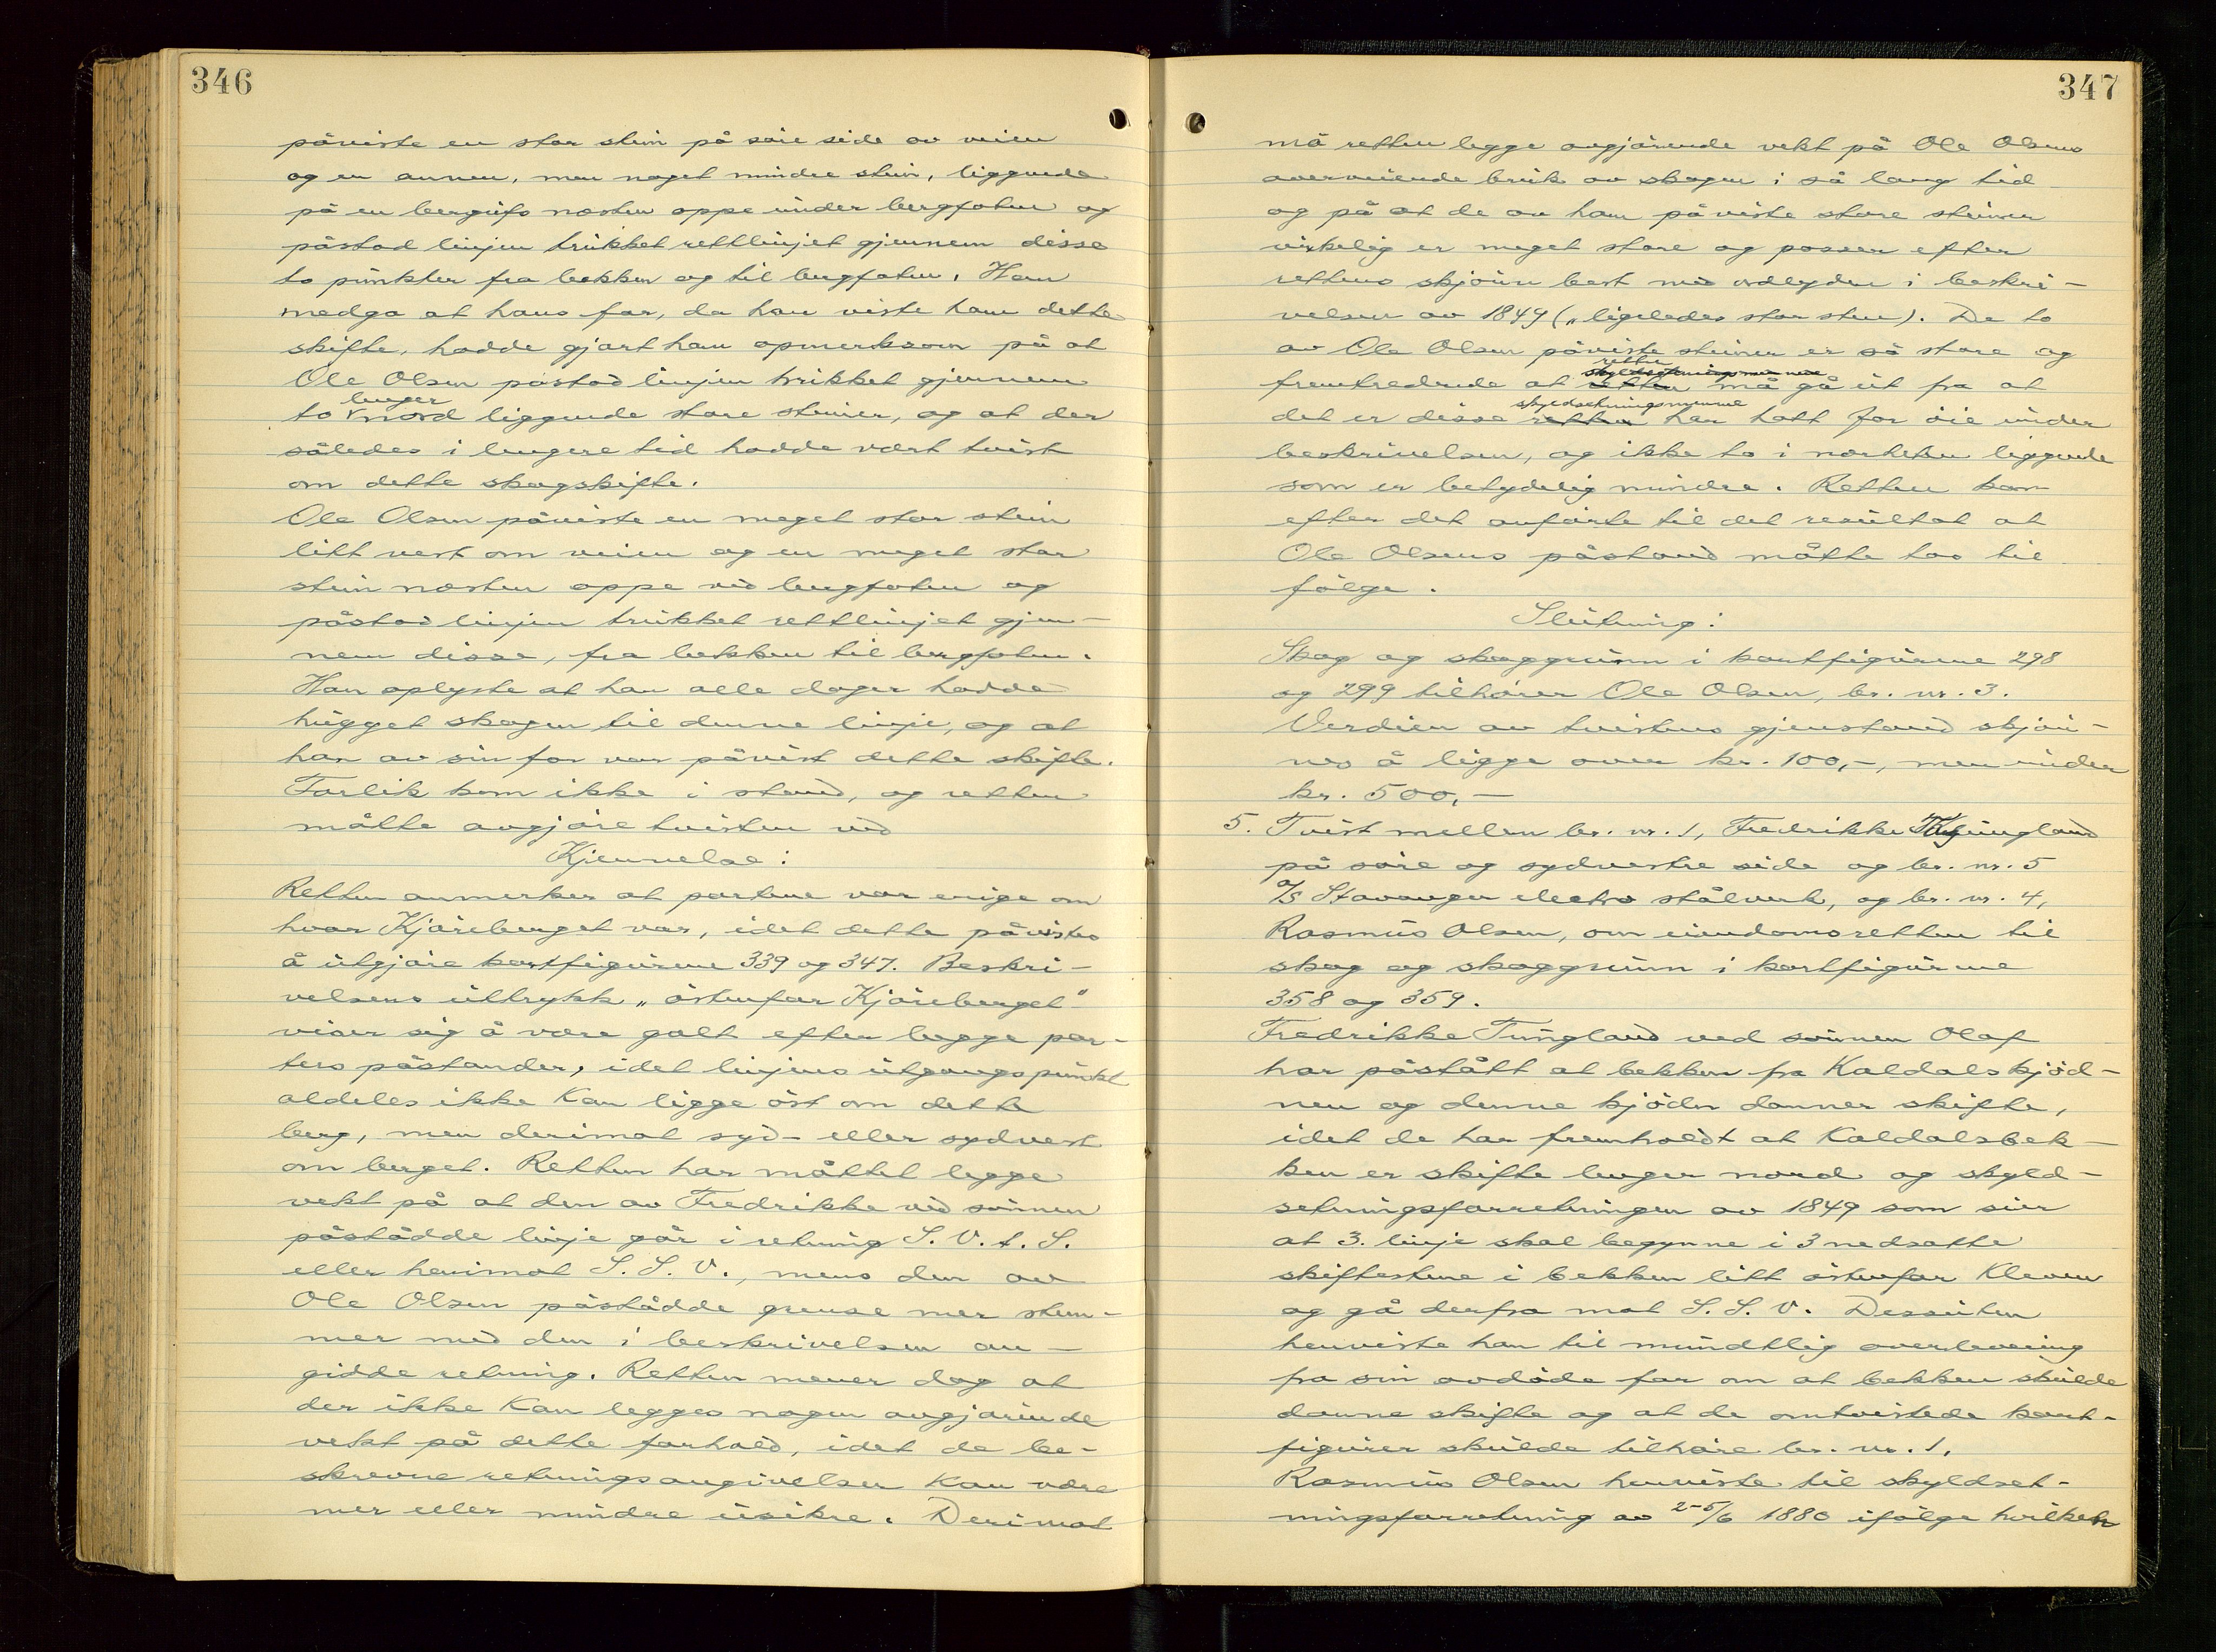 346
påviste en stor stein på søre side av veien
og en annen, men noget mindre stein, liggende
på en bergufs næsten oppe under bergfoten og
påstod linjen trukket rettlinjet gjennem disse
to punkter fra bekken og til bergfoten. Han
medga at hans far, da han viste ham dette
skifte, hadde gjort han opmerksom på at
Ole Olsen påstod linjen trukket gjennem
lenger
to nord liggende store steiner, og at der
således i lengere tid hadde vært tvist
om dette skogskifte.
Ole Olsen påviste en meget stor stein
litt vest om veien og en meget stor
stein næsten oppe ved bergfoten og
påstod linjen trukket rettlinjet gjen-
nem disse, fra bekken til bergfoten.
Han oplyste at han alle dager hadde
hugget skogen til denne linje, og at
han av sin far var påvist dette skifte.
Forlik kom ikke i stand, og retten
måtte avgjøre tvisten ved
Kjennelse:
Retten anmerker at partene var enige om
hvor Kjøreberget var, idet dette påvistes
å utgjøre kartfigurene 339 og 347. Beskri-
velsens uttrykk „østenfor Kjøreberget"
viser sig å være galt efter begge par-
ters påstander, idet linjens utgangspunkt
aldeles ikke kan ligge øst om dette
berg, men derimot syd- eller sydvest
om berget. Retten har måttet legge
vekt på at den av Fredrikke ved sønnen
påstådde linje går i retning S. V. t. S.
eller henimot S. S. V., mens den av
Ole Olsen påstådde grense mer stem-
mer med den i beskrivelsen an-
gidde retning. Retten mener dog at
der ikke kan legges nogen avgjørende
vekt på dette forhold, idet de be-
skrevne retningsangivelser kan være
mer eller mindre usikre. Derimot
347
må retten legge avgjørende vekt på Ole Olsens
overveiende bruk av skogen i så lang tid
og på at de av ham påviste store steiner
virkelig er meget store og passer efter
rettens skjønn best med ordlyden i beskri-
velsen av 1849 („ligeledes stor sten). De to
av Ole Olsen påviste steiner er så store og
retten
skyldsetningsmennene
fremtredende at retten må gå ut fra at
skyldsetningsmennene
det er disse retten har hatt for øie under
beskrivelsen, og ikke to i nærheten liggende
som er betydelig mindre. Retten kom
efter det anførte til det resultat at
Ole Olsens påstand måtte tas til
følge.
Slutning:
Skog og skoggrunn i kartfigurene 298
og 299 tilhører Ole Olsen, br. nr. 3.
Verdien av tvistens gjenstand skjøn-
nes å ligge over kr. 100,-, men under
kr. 500,-
5. Tvist mellem br. nr. 1, Fredrikke Tungland
på søre og sydvestre side og br. nr. 5
A/S Stavanger electro stålverk, og br. nr. 4,
Rasmus Olsen, om eiendomsretten til
skog og skoggrunn i kartfigurene
358 og 359.
Fredrikke Tungland ved sønnen Olaf
har påstått at bekken fra Kaldalskjød-
nen og denne kjødn danner skifte,
idet de har fremholdt at Kaldalsbek-
ken er skifte lenger nord og skyld-
setningsforretningen av 1849 som sier
at 3. linje skal begynne i 3 nedsatte
skiftestene i bekken litt østenfor Kleven
og gå derfra mot S. S. V. Dessuten
henviste han til mundtlig overlevering
fra sin avdøde far om at bekken skulde
danne skifte og at de omtvistede kart-
figurer skulde tilhøre br. nr. 1.
Rasmus Olsen henviste til skyldset-
ningsforretning av 25/6 1880 ifølge hvilken